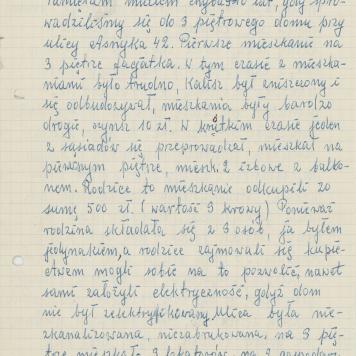 pamiętam miałem chyba lat, gdy spro-
wadziliśmy się do 3 piętrowego domu przy
ulicy Asnyka 42. Pierwsze mieszkanie na
3 piętrze facjatka. W tym czasie z mieszka-
niami było trudno, Kalisz był zniszczony i
się odbudowywał, mieszkania były bardzo
drogie, czynsz 10 zł. W krótkim czasie jeden
z sąsiadów się przeprowadzał, mieszkał na
pierwszym piętrze, mieszk. 2 izbowe z balko-
nem. Rodzice to mieszkanie odkupili za
sumę 500 zł. (wartość 3 krowy) Ponieważ
rodzina składała się z 3 osób, ja byłem
jedynakiem, a rodzice zajmowali się kupie-
ctwem mogli sobie na to pozwolić, nawet
sami założyli elektryczność, gdyż dom
nie był zelektryfikowany. Ulica była nie-
zkanalizowana, niezabrukowana, na 3 pię-
trze mieszkało 3 lokatorów, na 2